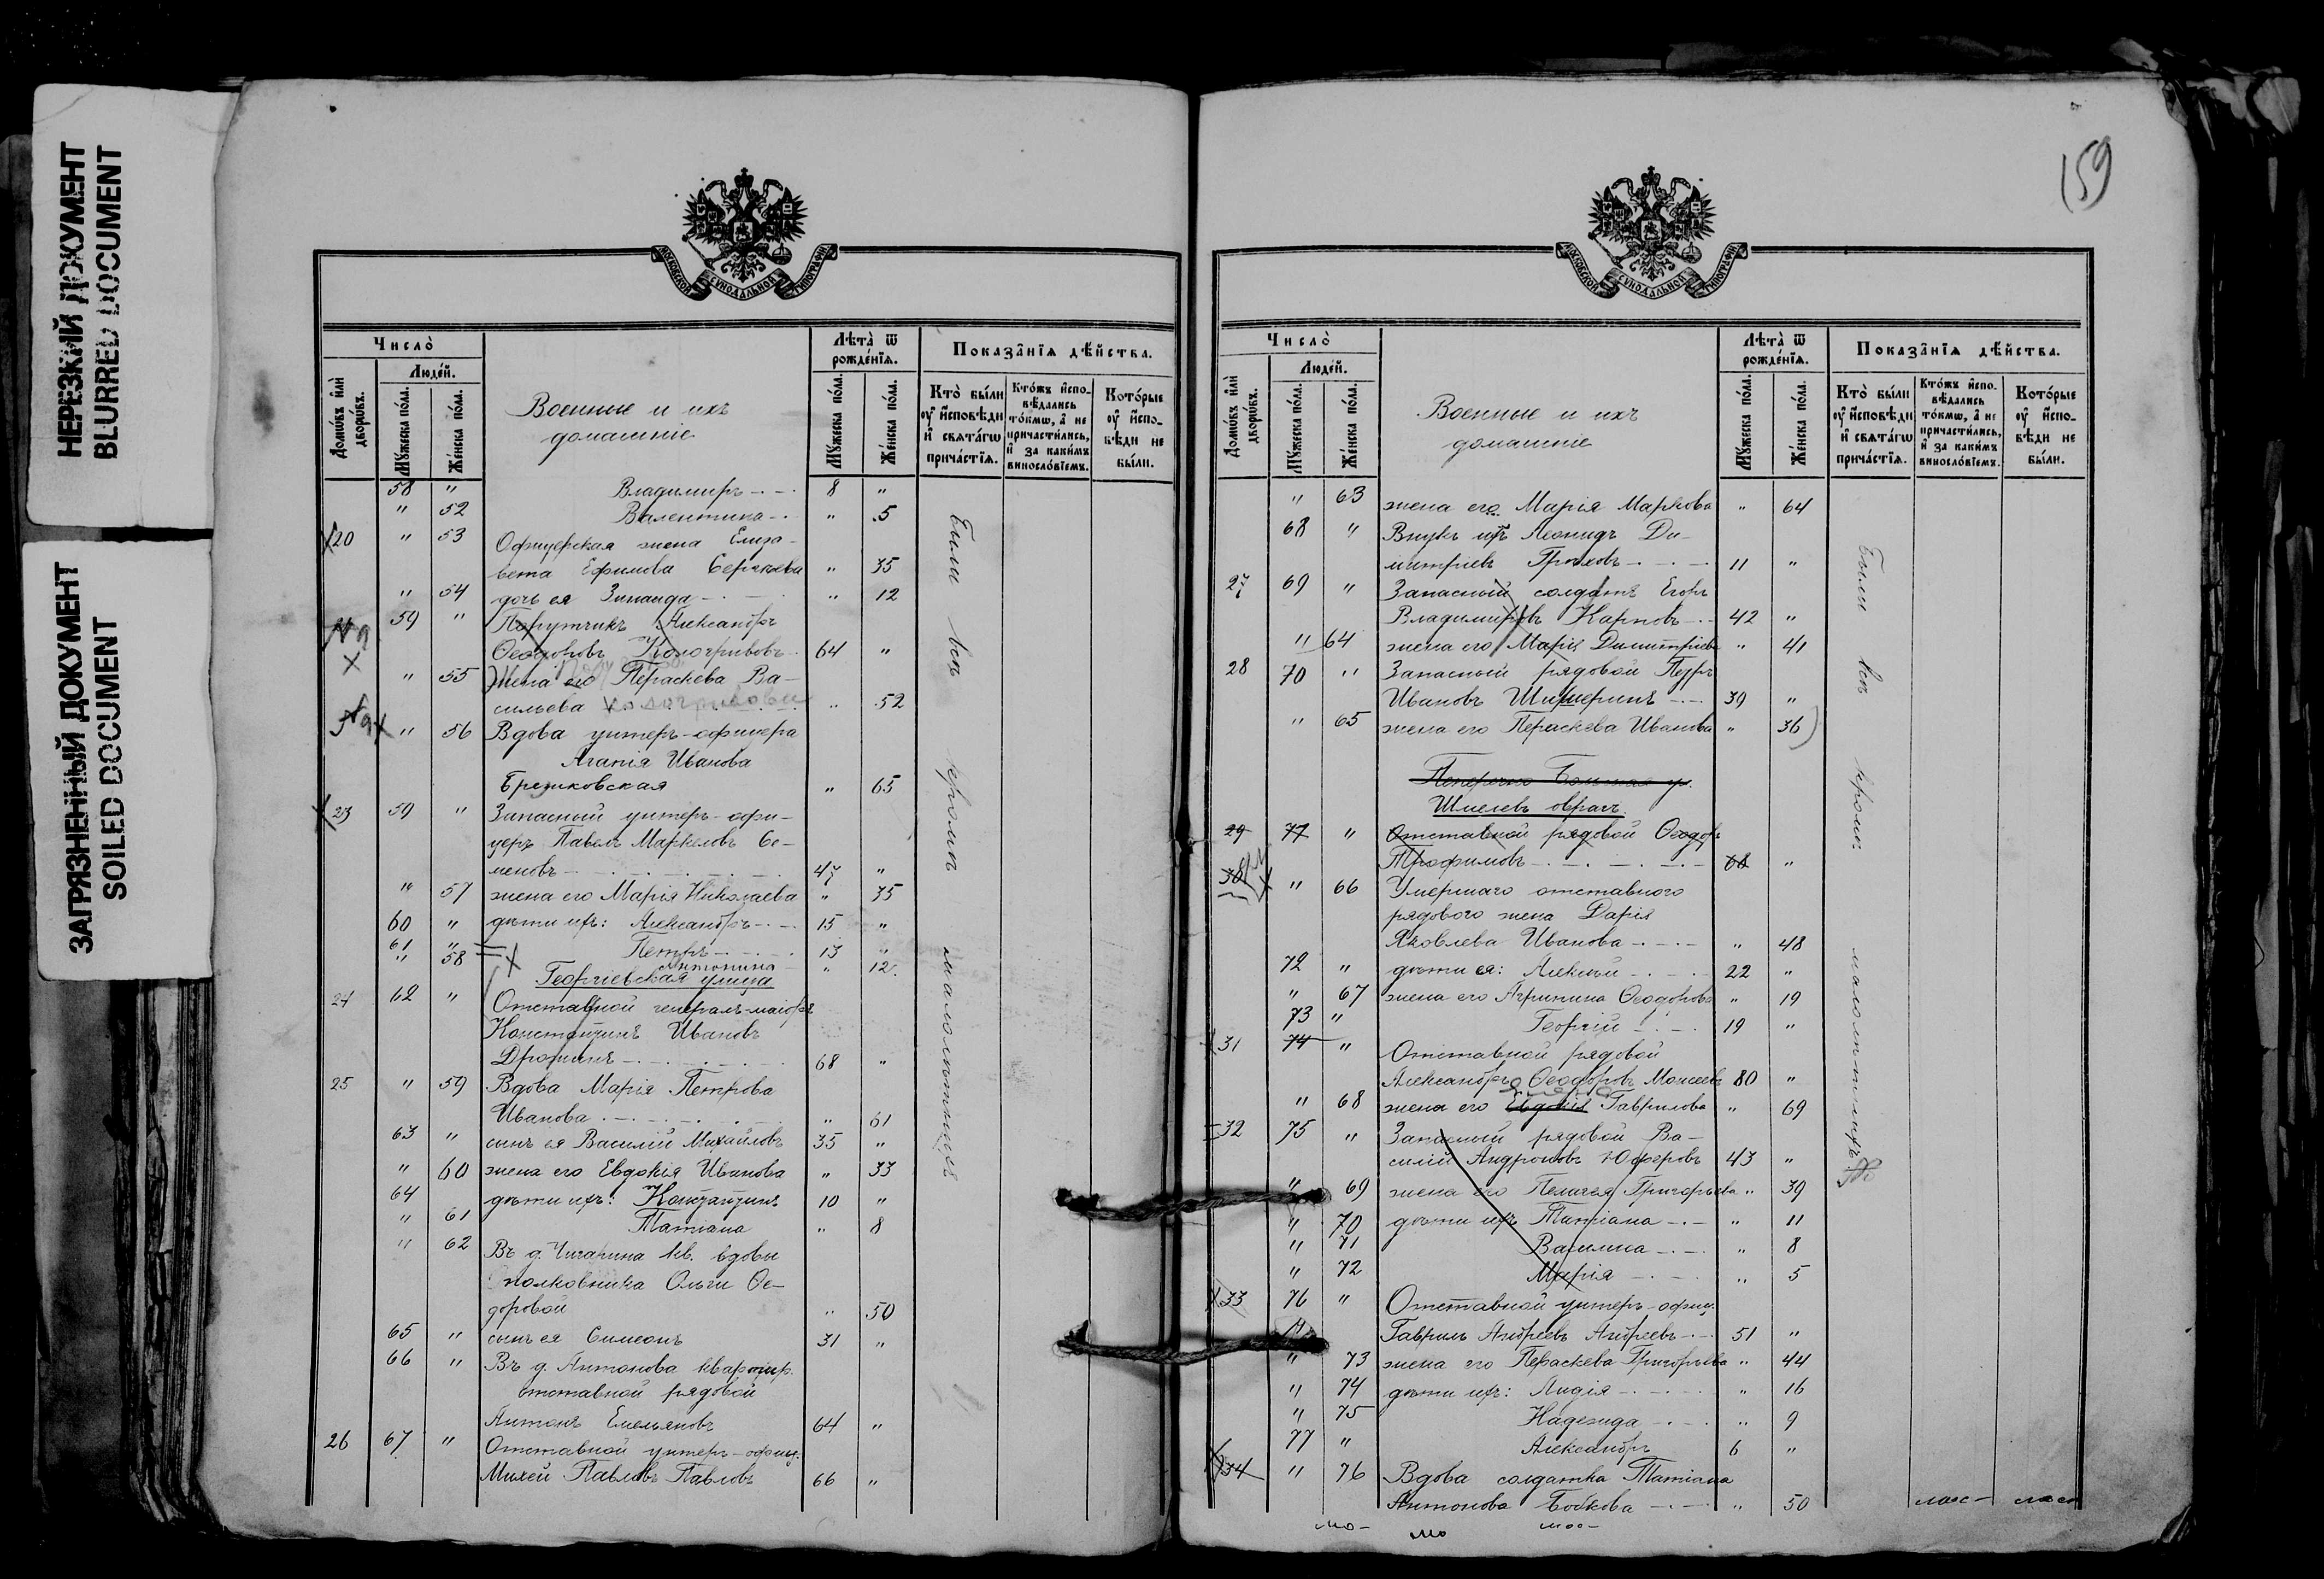 НЕРЕЗКИЙ ДОКУМЕНТ
BLURRED DOCUMENT
ЗАГРЯЗНЕННЫЙ ДОКУМЕНТ
SOILED DOCUMENT
МОСКОВСКОЙ СУНОДАЛЬНОЙ ТИПОГРАФІИ
Число̀
Лѣта̀ ѿ рожде́нїѧ.
Показа̑нїѧ дѣ́йства.
Домѡ́въ и҆лѝ дворѡ́въ.
Люде́й.
Мꙋ́жеска по́ла.
Же́нска по́ла.
Военные и ихъ
домашніе
Мꙋ́жеска по́ла.
Же́нска по́ла.
Кто̀ бы́ли ᲂу҆ и҆сповѣ́ди и҆ свѧта́гѡ прича́стїѧ.
Кто́жъ и҆спо-вѣ́дались то́кмѡ, а҆ не причасти́лись, и҆ за каки́мъ виносло́вїемъ.
Кото́рые ᲂу҆ и҆спо-вѣ́ди не бы́ли.
58 " Владимиръ 8 "
" 52 Валентина " 5
20 " 53 Офицерская жена Елиза-
вета Ефимова Сергѣева " 35
" 54 дочь ея Зинаида " 12
59 " Порутчикъ Александръ
Ѳеодоровъ Кологривовъ 64 "
" 55 Жена его Параскева Ва-
сильева Кологривова " 52
" 56 Вдова унтеръ-офицера
Агапія Иванова
" 65
23 59 " Запасный унтеръ-офи-
церъ Павелъ Маркеловъ Се-
меновъ 47 "
" 57 жена его Марія Николаева " 35
60 " дѣти ихъ: Александръ 15 "
61 " Петръ 13 "
" 58 Антонина " 12
Георгіевская улица
24 62 " Отставной генералъ-маіоръ
Константинъ Ивановъ
68 "
25 " 59 Вдова Марія Петрова
Иванова " 61
63 " сынъ ея Василій Михайловъ 35 "
" 60 жена его Евдокія Иванова " 33
64 " дѣти ихъ: Константинъ 10 "
" 61 Татіана " 8
" 62 Въ д. Чигарина кв. вдовы
полковника Ольги Ѳе-
доровой " 50
65 " сынъ ея Симеонъ 31 "
66 " Въ д. Антонова квартир.
отставной рядовой
Антонъ Емельяновъ 64 "
26 67 " Отставной унтеръ-офиц.
Михей Павловъ Павловъ 66 "
Были всѣ кромѣ малолѣтнихъ
159
МОСКОВСКОЙ СУНОДАЛЬНОЙ ТИПОГРАФІИ
Число̀
Лѣта̀ ѿ рожде́нїѧ.
Показа̑нїѧ дѣ́йства.
Домѡ́въ и҆лѝ дворѡ́въ.
Люде́й.
Мꙋ́жеска по́ла.
Же́нска по́ла.
Военные и ихъ
домашніе
Мꙋ́жеска по́ла.
Же́нска по́ла.
Кто̀ бы́ли ᲂу҆ и҆сповѣ́ди и҆ свѧта́гѡ прича́стїѧ.
Кто́жъ и҆спо-вѣ́дались то́кмѡ, а҆ не причасти́лись, и҆ за каки́мъ виносло́вїемъ.
Кото́рые ᲂу҆ и҆спо-вѣ́ди не бы́ли.
" 63 жена его Марія Маркова " 64
68 " Внукъ ихъ Леонидъ Ди-
митріевъ Грѣховъ 11 "
27 69 " Запасный солдатъ Егоръ
Владимировъ Карповъ 42 "
" 64 жена его Марія Димитріева " 41
28 70 " Запасный рядовой Петръ
Ивановъ 39 "
" 65 жена его Параскева Иванова " 36
Шмелевъ оврагъ.
29 77 " Отставной рядовой Ѳеодоръ
Трофимовъ 68 "
30 " 66 Умершаго отставного
рядового жена Дарія
Яковлева Иванова " 48
72 " дѣти ея: Алексѣй 22 "
" 67 жена его Агрипина Ѳеодорова " 19
73 " Георгій 19 "
31 74 " Отставной рядовой
Александръ Ѳеодоровъ Моисеевъ 80 "
" 68 жена его Евдокія Гаврилова " 69
32 75 " Запасный рядовой Ва-
силій Андроновъ Юферовъ 43 "
" 69 жена его Пелагея Григорьева " 39
" 70 дѣти ихъ Татіана " 11
" 71 Василиса " 8
" 72 Марія " 5
33 76 " Отставной унтеръ-офиц.
Гавріилъ Андреевъ Андреевъ 51 "
" 73 жена его Параскева Григорьева " 44
" 74 дѣти ихъ: Лидія " 16
" 75 Надежда " 9
77 " Александръ 6 "
34 " 76 Вдова солдатка Татіана
Антонова Бобкова " 50
Были всѣ кромѣ малолѣтнихъ